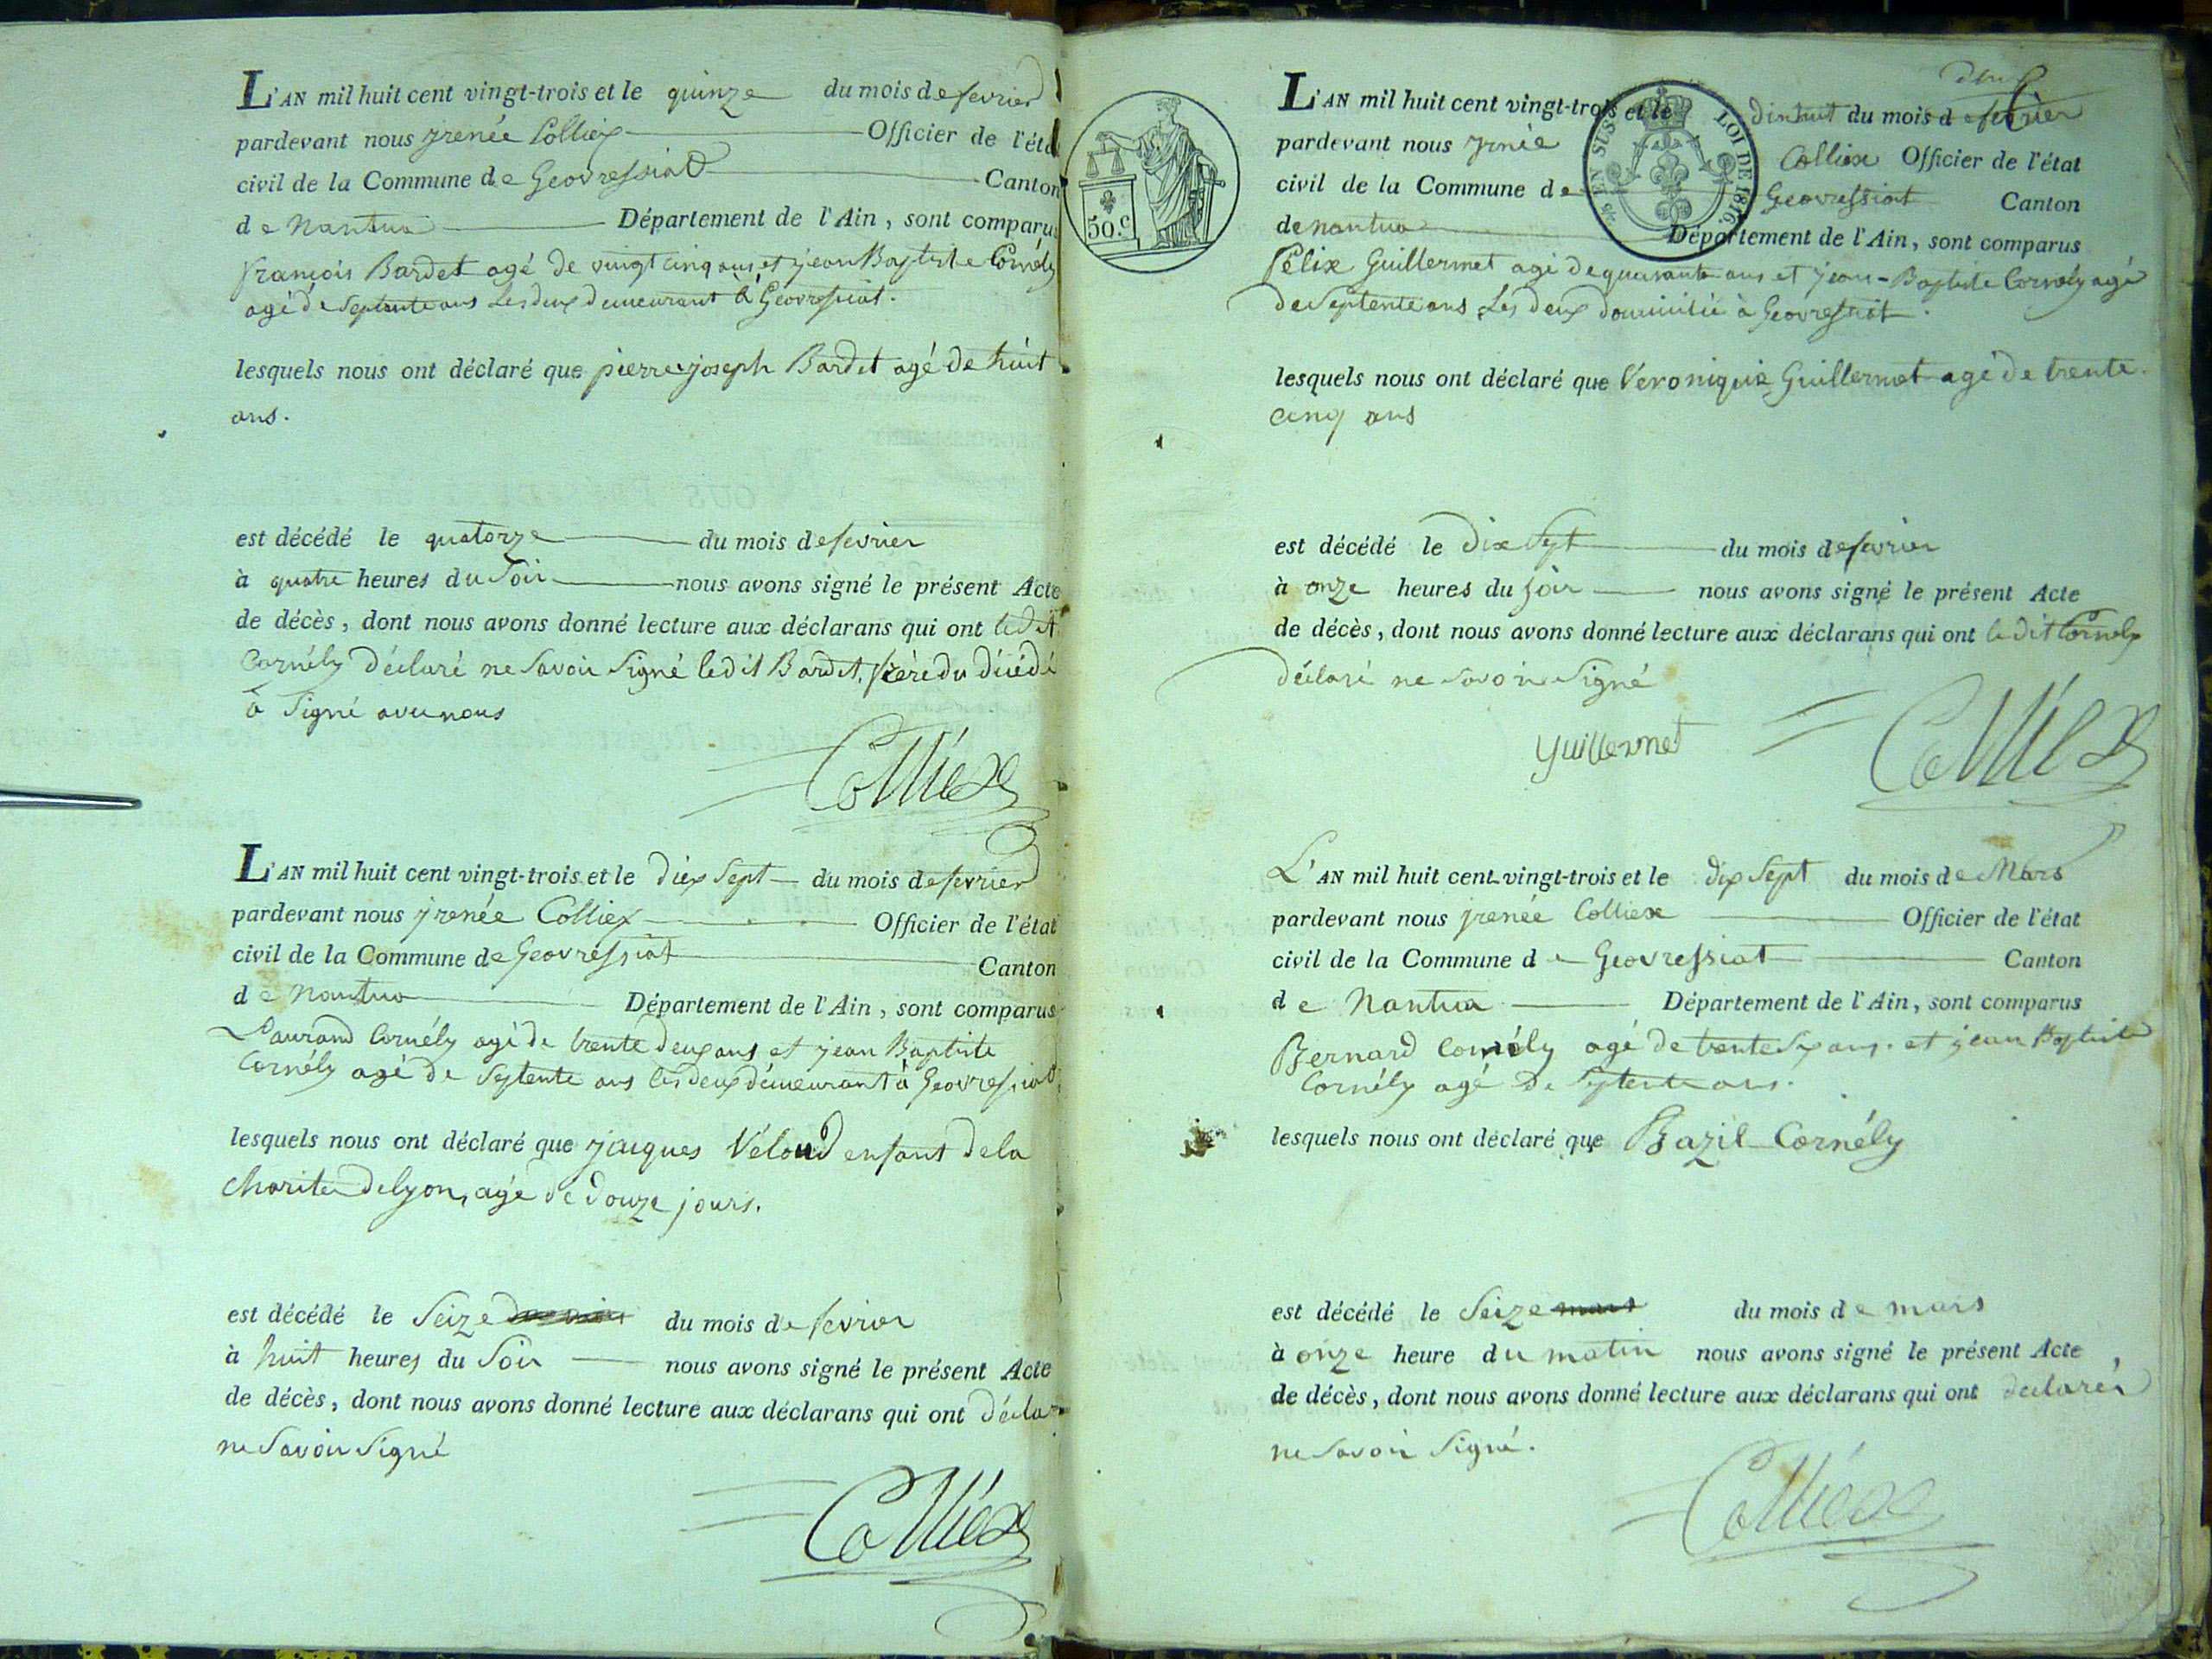 L'AN mil huit cent vingt-trois et le quinze du mois de fevrier
pardevant nous jrenée Colliex Officier de l'éta
civil de la Commune de Geovressiat Canton
de Nantua Département de l'Ain, sont comparu
françois Bardet agé de vingt cinq ans et jean Baptiste Cornély
agé de Septente ans Les deux demeurant à Geovressiat.
lesquels nous ont déclaré que pierre joseph Bardet agé de huit
ans.
est décédé le quatorze du mois de fevrier
à quatre heures du Soir nous avons signé le présent Acte
de décès, dont nous avons donné lecture aux déclarans qui ont ledit
Cornély déclaré ne Savoir Signé ledit Bardet, frère du décédé
à Signé avec nous
Colliex
L'AN mil huit cent vingt-trois et le diex Sept du mois de fevrier
pardevant nous jrenée Colliex Officier de l'état
civil de la Commune de Geovressiat Canton
de Nantua Département de l'Ain, sont comparus
Laurand Cornély agé de trente deux ans et jean Baptiste
Cornély agé de Septente ans les deux demeurant à Geovressiat
lesquels nous ont déclaré que jacques Véloud enfant de la
charite de lyon, agé de douze jours.
est décédé le Seize du mois de fevrier
à huit heures du Soir nous avons signé le présent Acte
de décès, dont nous avons donné lecture aux déclarans qui ont décla
ne Savoir Signé
Colliex
50.c
EN SUS LOI DE 1816.
L'AN mil huit cent vingt-trois et le dixhuit du mois de fevrier
pardevant nous jrnée Colliex Officier de l'état
civil de la Commune de Geovressiat Canton
de nantua Département de l'Ain, sont comparus
Félix Guillermet agé de quarante ans et jean-Baptiste Cornely agé
de Septente ans Les deux domicilié à Geovressiat.
lesquels nous ont déclaré que Veronique Guillermet agé de trente
cinq ans
est décédé le dix Sept du mois de fevrier
à onze heures du soir nous avons signé le présent Acte
de décès, dont nous avons donné lecture aux déclarans qui ont le dit Cornely
déclaré ne Savoir Signé
guillermet Colliex
L'AN mil huit cent vingt-trois et le dix Sept du mois de Mars
pardevant nous jrenée Colliex Officier de l'état
civil de la Commune de Geovressiat Canton
de Nantua Département de l'Ain, sont comparus
Bernard Cornély agé de ans. et jean Baptiste
Cornély agé de Septente ans.
lesquels nous ont déclaré que Bazil Cornély
est décédé le Seize mars du mois de mars
à onze heure du matin nous avons signé le présent Acte
de décès, dont nous avons donné lecture aux déclarans qui ont declarés
ne Savoir Signé.
Colliex